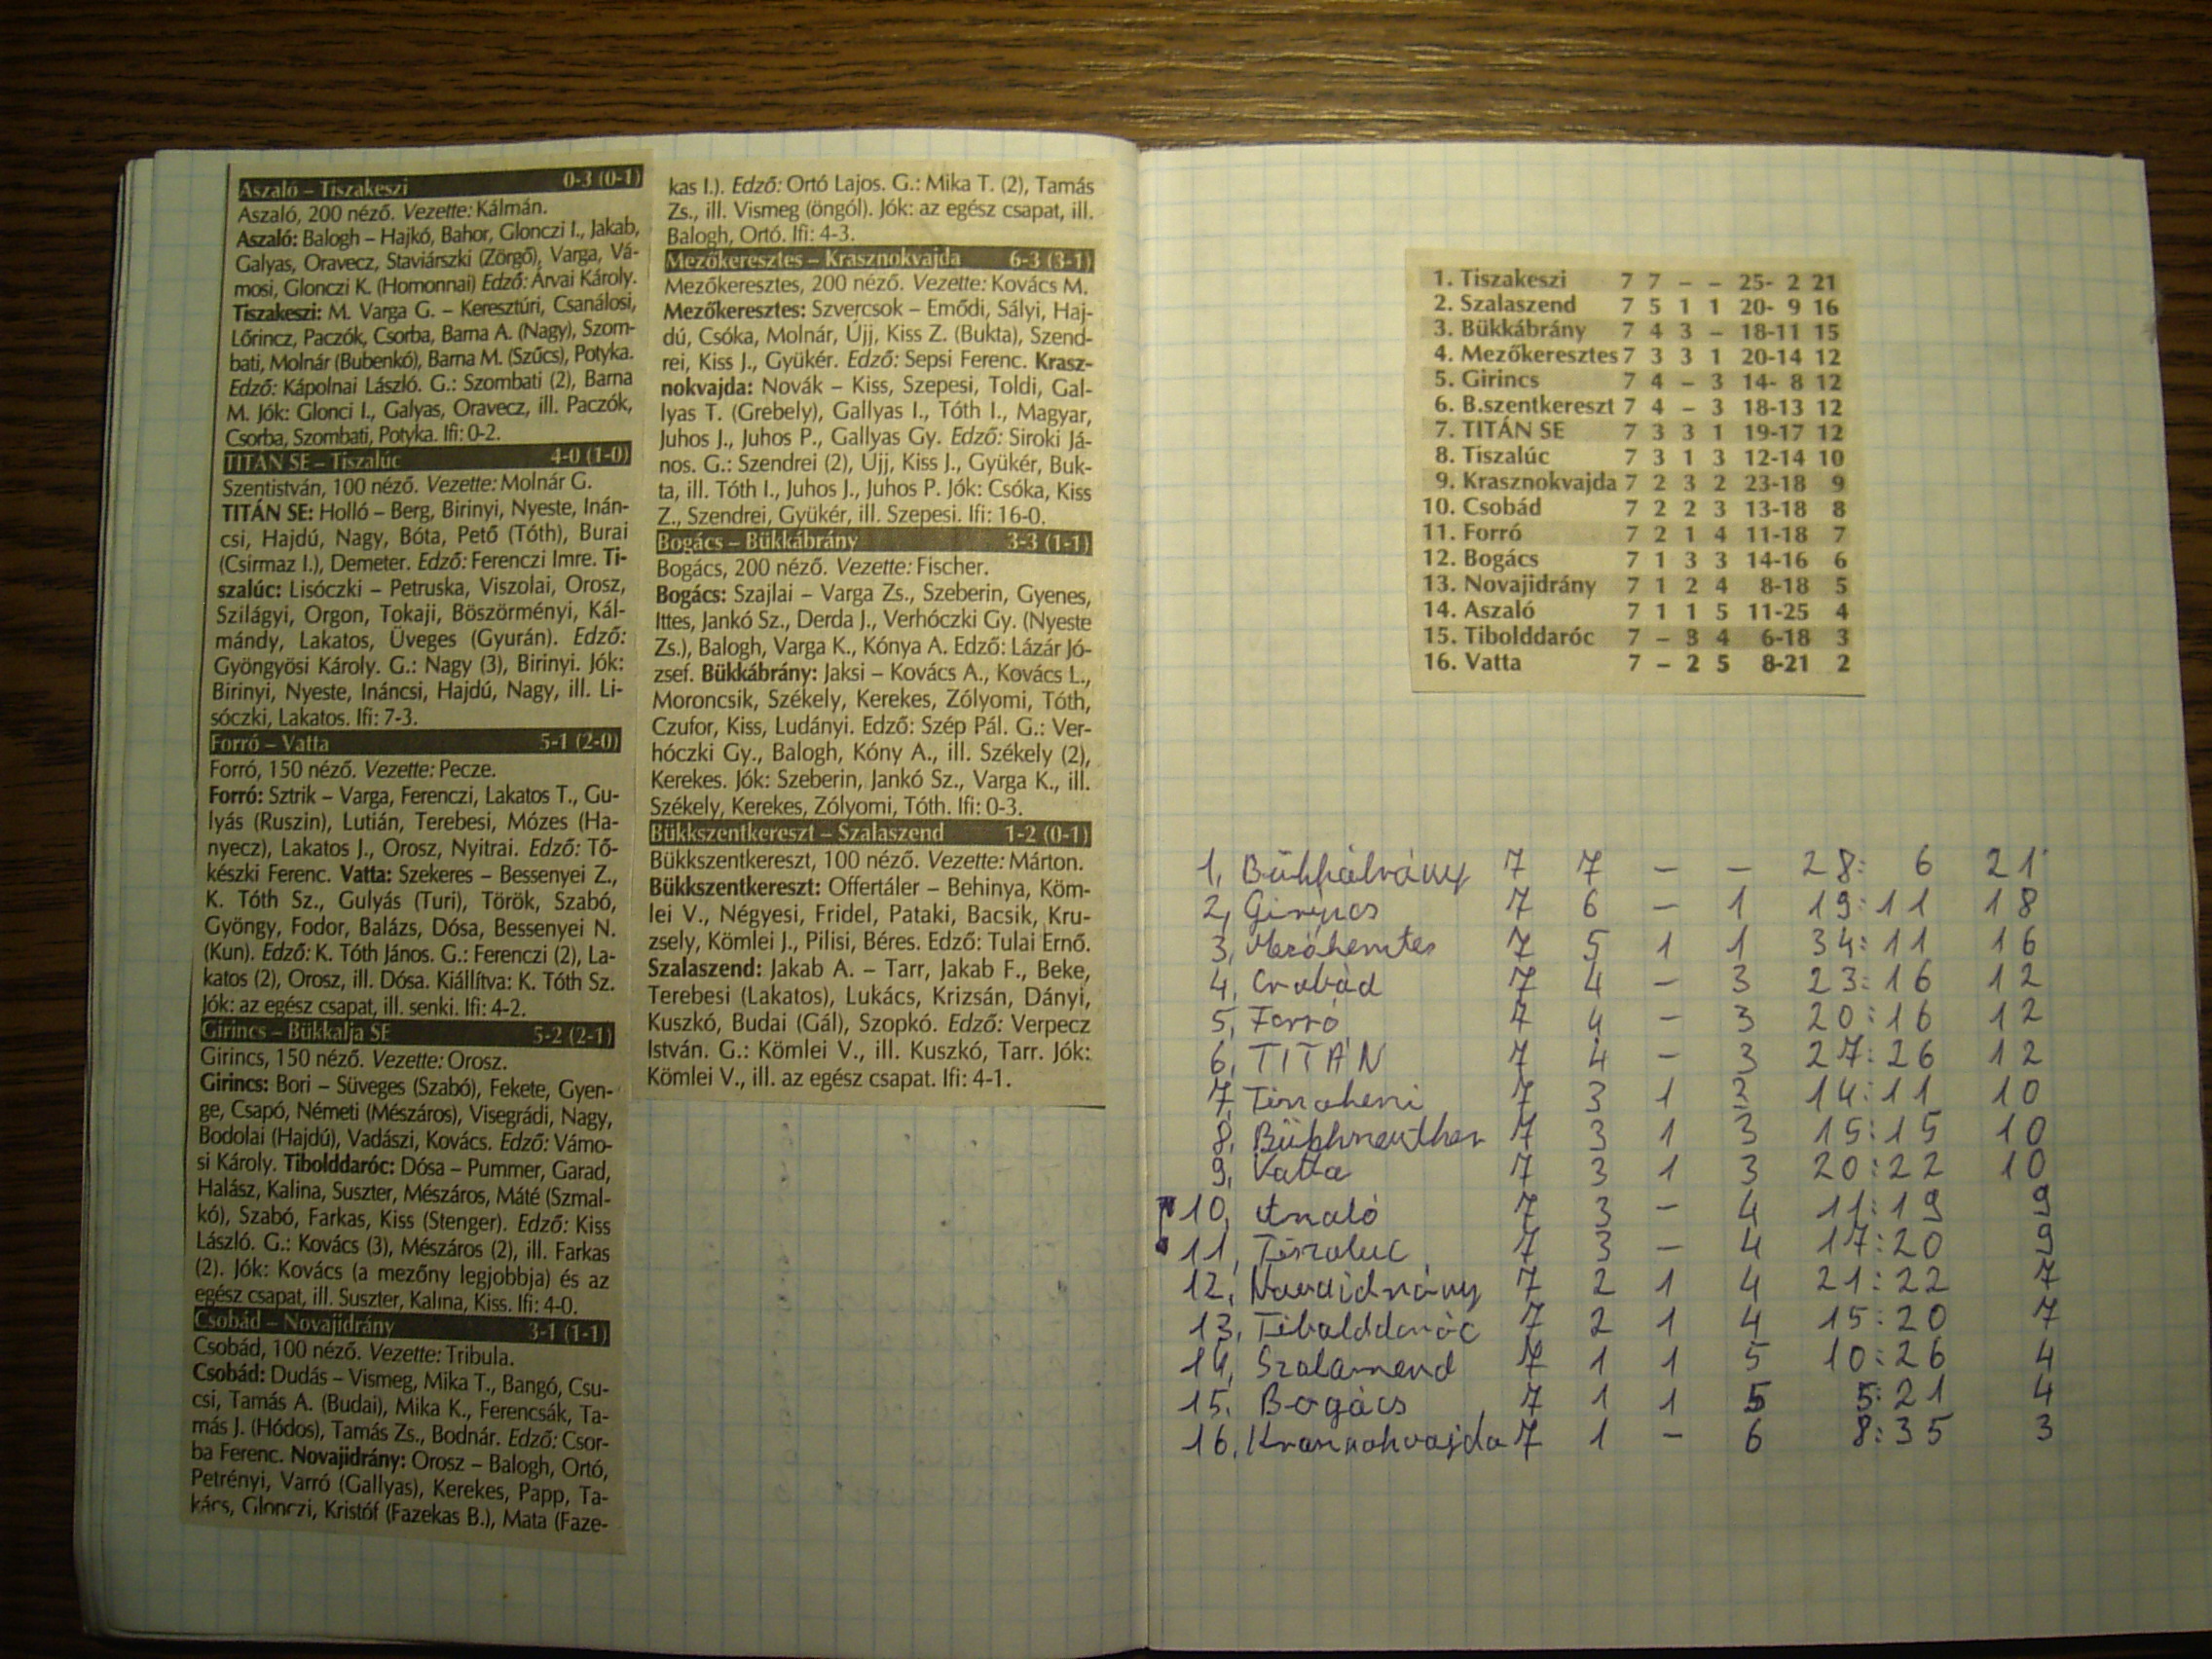 Aszaló – Tiszakeszi 0-3 (0-1)
Aszaló, 200 néző. Vezette: Kálmán.
Aszaló: Balogh – Hajkó, Bahor, Glonczi I., Jakab,
Galyas, Oravecz, Staviárszki (Zörgő), Varga, Vá-
mosi, Glonczi K. (Homonnai) Edző: Árvai Károly.
Tiszakeszi: M. Varga G. – Keresztúri, Csanálosi,
Lőrincz, Paczók, Csorba, Barna A. (Nagy), Szom-
bati, Molnár (Bubenkó), Barna M. (Szűcs), Potyka.
Edző: Kápolnai László. G.: Szombati (2), Barna
M. Jók: Glonci I., Galyas, Oravecz, ill. Paczók,
Csorba, Szombati, Potyka. Ifi: 0-2.
TITÁN SE – Tiszalúc 4-0 (1-0)
Szentistván, 100 néző. Vezette: Molnár G.
TITÁN SE: Holló – Berg, Birinyi, Nyeste, Inán-
csi, Hajdú, Nagy, Bóta, Pető (Tóth), Burai
(Csirmaz I.), Demeter. Edző: Ferenczi Imre. Ti-
szalúc: Lisóczki – Petruska, Viszolai, Orosz,
Szilágyi, Orgon, Tokaji, Böszörményi, Kál-
mándy, Lakatos, Üveges (Gyurán). Edző:
Gyöngyösi Károly. G.: Nagy (3), Birinyi. Jók:
Birinyi, Nyeste, Ináncsi, Hajdú, Nagy, ill. Li-
sóczki, Lakatos. Ifi: 7-3.
Forró – Vatta 5-1 (2-0)
Forró, 150 néző. Vezette: Pecze.
Forró: Sztrik – Varga, Ferenczi, Lakatos T., Gu-
lyás (Ruszin), Lutián, Terebesi, Mózes (Ha-
nyecz), Lakatos J., Orosz, Nyitrai. Edző: Tő-
készki Ferenc. Vatta: Szekeres – Bessenyei Z.,
K. Tóth Sz., Gulyás (Turi), Török, Szabó,
Gyöngy, Fodor, Balázs, Dósa, Bessenyei N.
(Kun). Edző: K. Tóth János. G.: Ferenczi (2), La-
katos (2), Orosz, ill. Dósa. Kiállítva: K. Tóth Sz.
Jók: az egész csapat, ill. senki. Ifi: 4-2.
Girincs – Bükkalja SE 5-2 (2-1)
Girincs, 150 néző. Vezette: Orosz.
Girincs: Bori – Süveges (Szabó), Fekete, Gyen-
ge, Csapó, Németi (Mészáros), Visegrádi, Nagy,
Bodolai (Hajdú), Vadászi, Kovács. Edző: Vámo-
si Károly. Tibolddaróc: Dósa – Pummer, Garad,
Halász, Kalina, Suszter, Mészáros, Máté (Szmal-
kó), Szabó, Farkas, Kiss (Stenger). Edző: Kiss
László. G.: Kovács (3), Mészáros (2), ill. Farkas
(2). Jók: Kovács (a mezőny legjobbja) és az
egész csapat, ill. Suszter, Kalina, Kiss. Ifi: 4-0.
Csobád – Novajidrány 3-1 (1-1)
Csobád, 100 néző. Vezette: Tribula.
Csobád: Dudás – Vismeg, Mika T., Bangó, Csu-
csi, Tamás A. (Budai), Mika K., Ferencsák, Ta-
más J. (Hódos), Tamás Zs., Bodnár. Edző: Csor-
ba Ferenc. Novajidrány: Orosz – Balogh, Ortó,
Petrényi, Varró (Gallyas), Kerekes, Papp, Ta-
kács, Glonczi, Kristóf (Fazekas B.), Mata (Faze-
kas I.). Edző: Ortó Lajos. G.: Mika T. (2), Tamás
Zs., ill. Vismeg (öngól). Jók: az egész csapat, ill.
Balogh, Ortó. Ifi: 4-3.
Mezőkeresztes – Krasznokvajda 6-3 (3-1)
Mezőkeresztes, 200 néző. Vezette: Kovács M.
Mezőkeresztes: Szvercsok – Emődi, Sályi, Haj-
dú, Csóka, Molnár, Újj, Kiss Z. (Bukta), Szend-
rei, Kiss J., Gyükér. Edző: Sepsi Ferenc. Krasz-
nokvajda: Novák – Kiss, Szepesi, Toldi, Gal-
lyas T. (Grebely), Gallyas I., Tóth I., Magyar,
Juhos J., Juhos P., Gallyas Gy. Edző: Siroki Já-
nos. G.: Szendrei (2), Újj, Kiss J., Gyükér, Buk-
ta, ill. Tóth I., Juhos J., Juhos P. Jók: Csóka, Kiss
Z., Szendrei, Gyükér, ill. Szepesi. Ifi: 16-0.
Bogács – Bükkábrány 3-3 (1-1)
Bogács, 200 néző. Vezette: Fischer.
Bogács: Szajlai – Varga Zs., Szeberin, Gyenes,
Ittes, Jankó Sz., Derda J., Verhóczki Gy. (Nyeste
Zs.), Balogh, Varga K., Kónya A. Edző: Lázár Jó-
zsef. Bükkábrány: Jaksi – Kovács A., Kovács L.,
Moroncsik, Székely, Kerekes, Zólyomi, Tóth,
Czufor, Kiss, Ludányi. Edző: Szép Pál. G.: Ver-
hóczki Gy., Balogh, Kóny A., ill. Székely (2),
Kerekes. Jók: Szeberin, Jankó Sz., Varga K., ill.
Székely, Kerekes, Zólyomi, Tóth. Ifi: 0-3.
Bükkszentkereszt – Szalaszend 1-2 (0-1)
Bükkszentkereszt, 100 néző. Vezette: Márton.
Bükkszentkereszt: Offertáler – Behinya, Köm-
lei V., Négyesi, Fridel, Pataki, Bacsik, Kru-
zsely, Kömlei J., Pilisi, Béres. Edző: Tulai Ernő.
Szalaszend: Jakab A. – Tarr, Jakab F., Beke,
Terebesi (Lakatos), Lukács, Krizsán, Dányi,
Kuszkó, Budai (Gál), Szopkó. Edző: Verpecz
István. G.: Kömlei V., ill. Kuszkó, Tarr. Jók:
Kömlei V., ill. az egész csapat. Ifi: 4-1.
1. Tiszakeszi 7 7 – – 25- 2 21
2. Szalaszend 7 5 1 1 20- 9 16
3. Bükkábrány 7 4 3 – 18-11 15
4. Mezőkeresztes 7 3 3 1 20-14 12
5. Girincs 7 4 – 3 14- 8 12
6. B.szentkereszt 7 4 – 3 18-13 12
7. TITÁN SE 7 3 3 1 19-17 12
8. Tiszalúc 7 3 1 3 12-14 10
9. Krasznokvajda 7 2 3 2 23-18 9
10. Csobád 7 2 2 3 13-18 8
11. Forró 7 2 1 4 11-18 7
12. Bogács 7 1 3 3 14-16 6
13. Novajidrány 7 1 2 4 8-18 5
14. Aszaló 7 1 1 5 11-25 4
15. Tibolddaróc 7 – 3 4 6-18 3
16. Vatta 7 – 2 5 8-21 2
1, Bükkábrány 7 7 – – 28: 6 21
2, Girincs 7 6 – 1 19:11 18
3, 7 5 1 1 34:11 16
4, Csobád 7 4 – 3 23:16 12
5, Forró 7 4 – 3 20:16 12
6, TITÁN 7 4 – 3 27:26 12
7, Tiszakeszi 7 3 1 3 14:11 10
8, 7 3 1 3 15:15 10
9, Vatta 7 3 1 3 20:22 10
10, Aszaló 7 3 – 4 11:19 9
11, Tiszaluc 7 3 – 4 17:20 9
12, Novaidrány 7 2 1 4 21:22 7
13, Tibolddaróc 7 2 1 4 15:20 7
14, Szalaszend 7 1 1 5 10:26 4
15. Bogács 7 1 1 5 5:21 4
16. Krasznokvajda 7 1 – 6 8:35 3